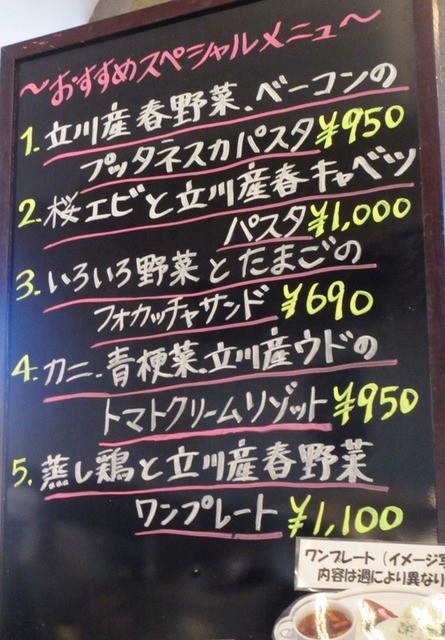 〜おすすめスペシャルメニュー〜
1. 立川産春野菜、ベーコンの
プッタネスカパスタ ¥950
2. 桜エビと立川産春キャベツ
パスタ ¥1,000
3. いろいろ野菜とたまごの
フォカッチャサンド ¥690
4. カニ、青梗菜、立川産ウドの
トマトクリームリゾット ¥950
5. 蒸し鶏と立川産春野菜
ワンプレート ¥1,100
ワンプレート（イメージ写
内容は週により異なり